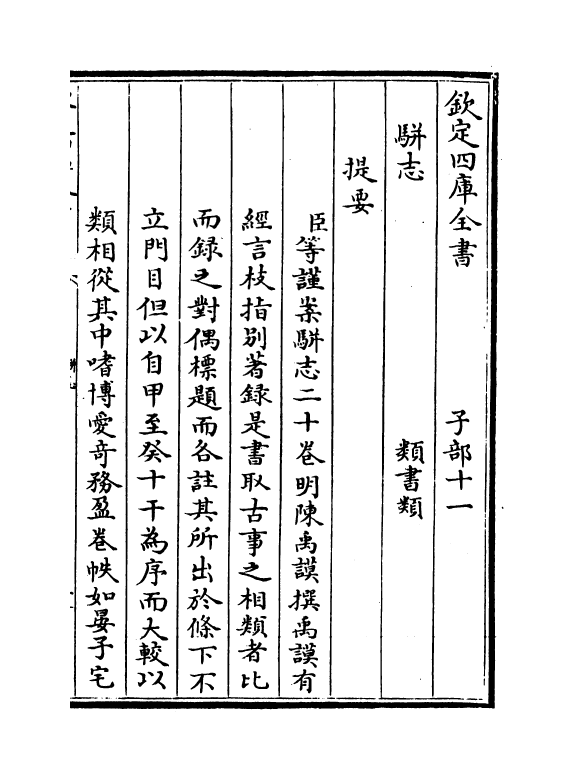 欽定四庫全書　子部十一
騈志　類書類
提要
臣等謹案騈志二十卷明陳禹謨撰禹謨有
經言枝指别著録是書取古事之相類者比
而録之對偶標題而各註其所出於條下不
立門目但以自甲至癸十干為序而大較以
類相從其中嗜博愛奇務盈卷帙如晏子宅